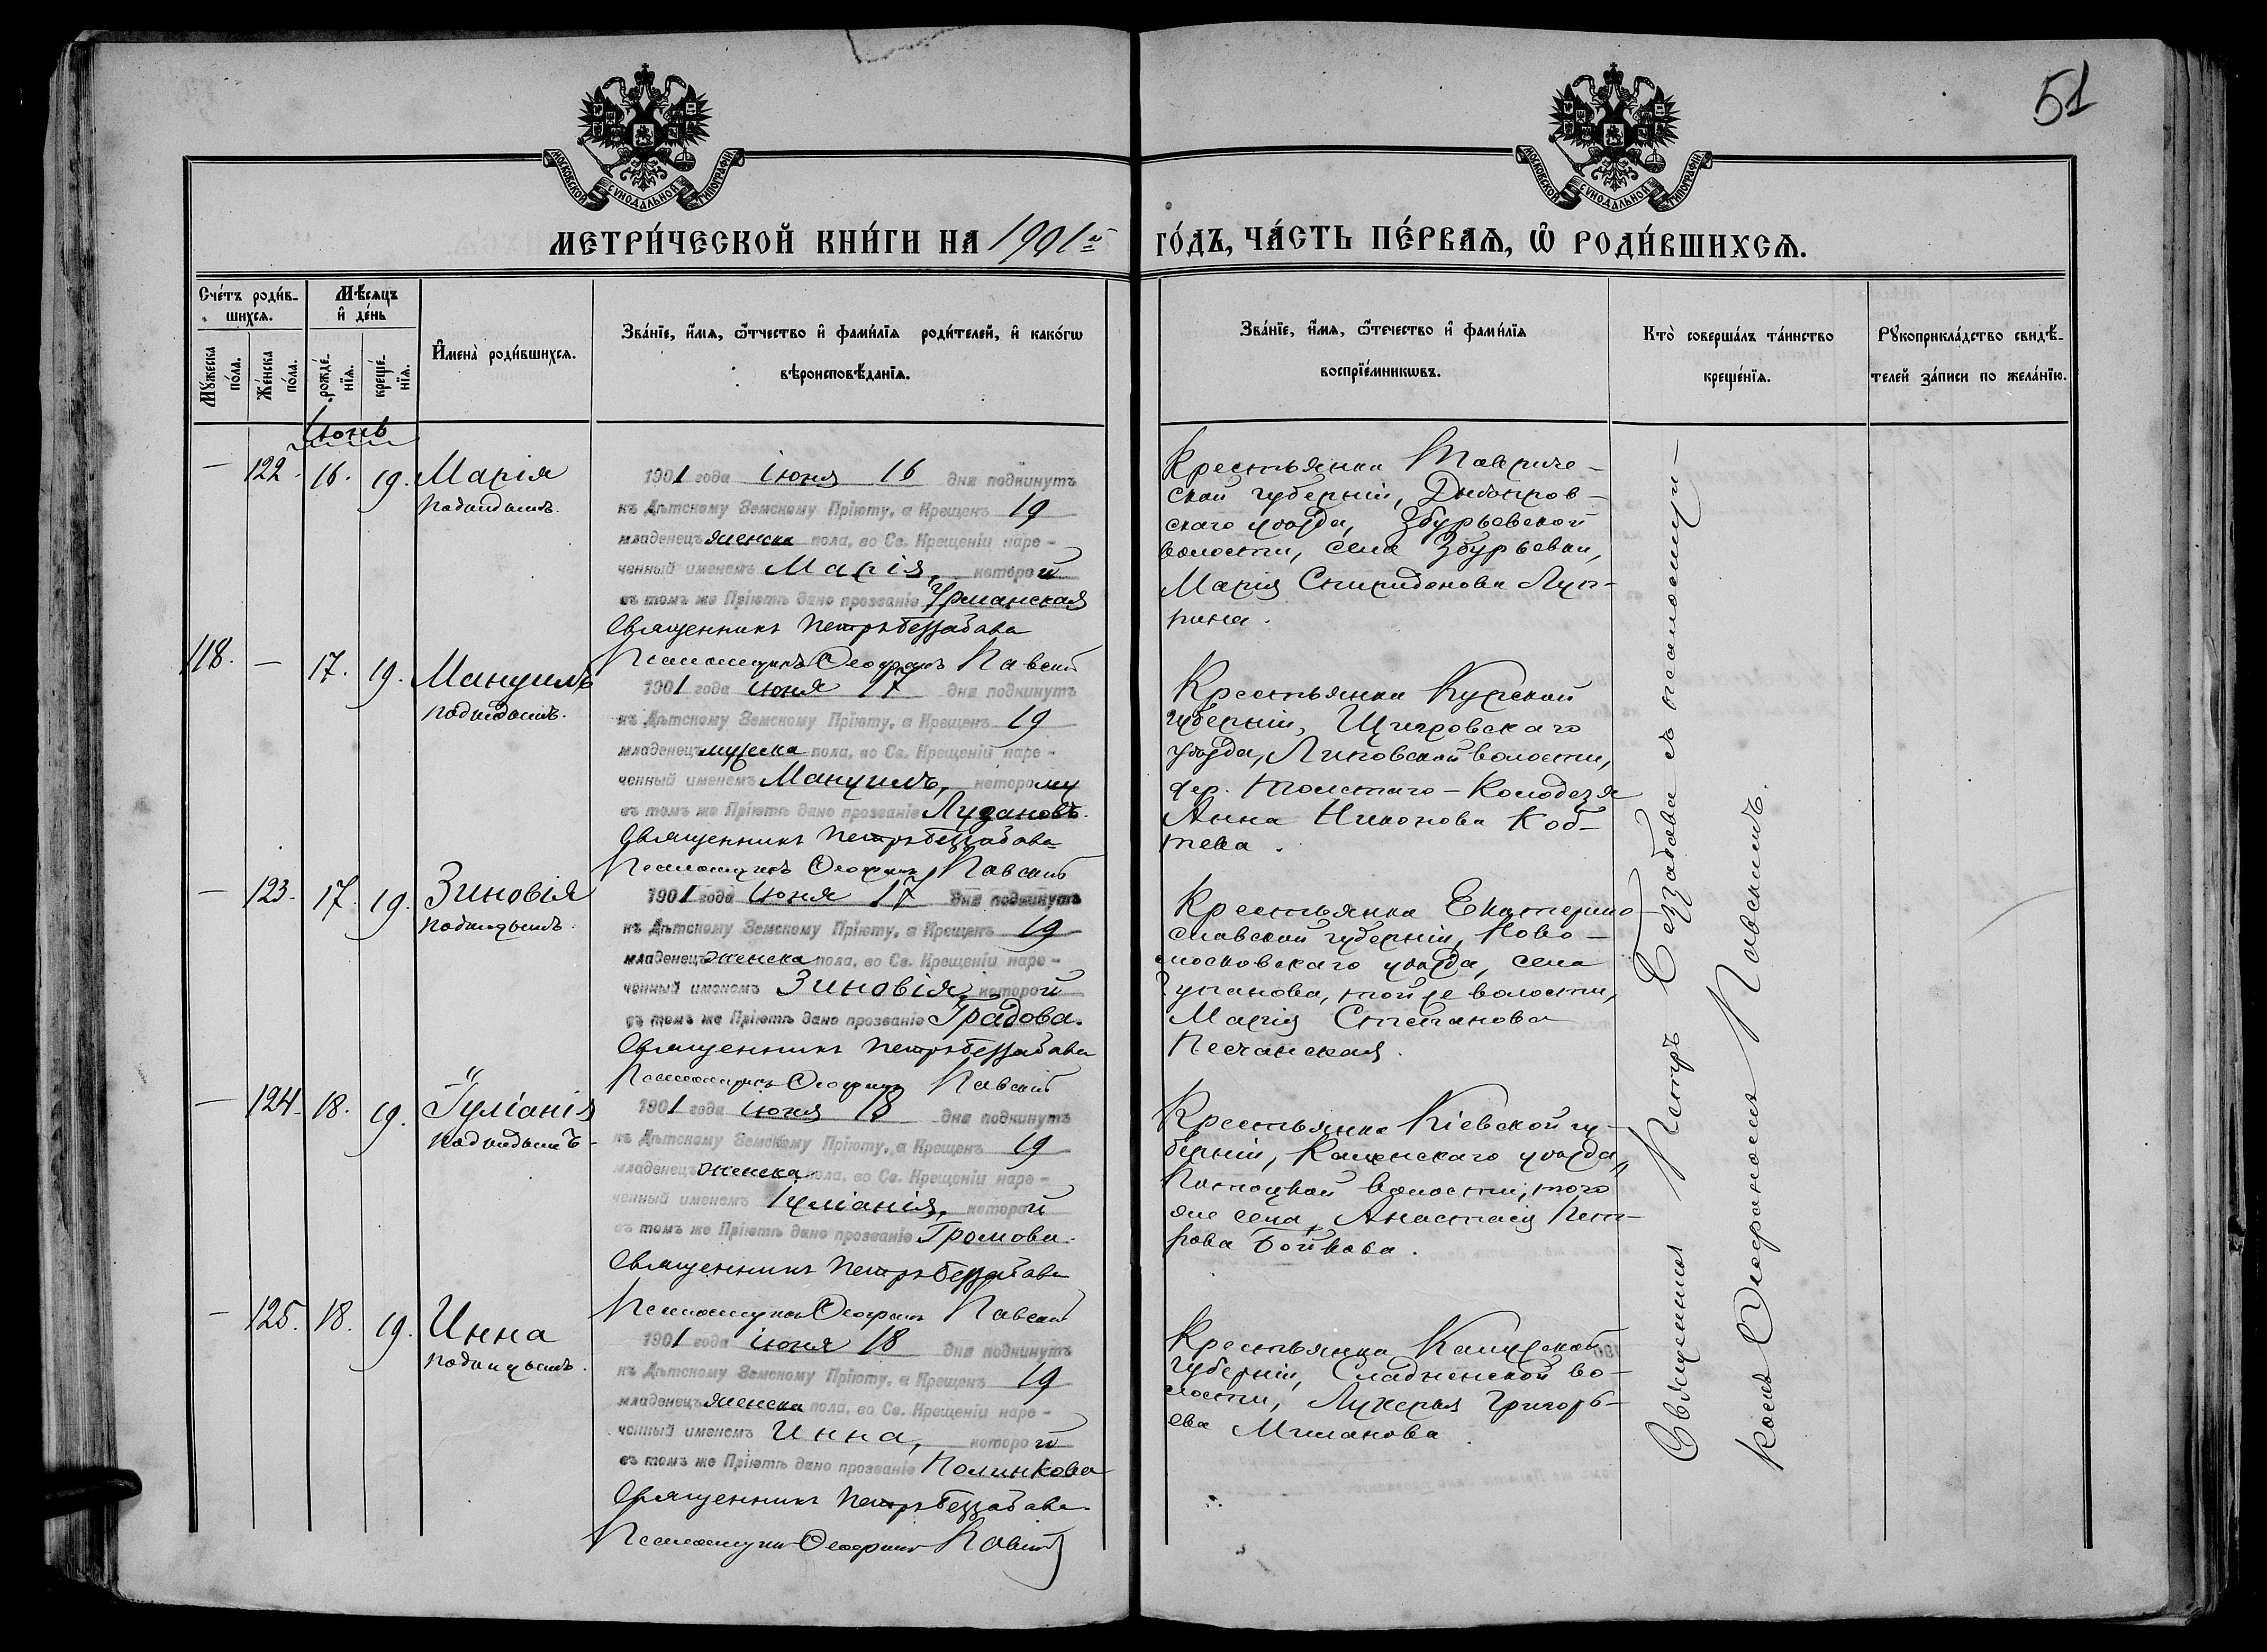 51
МОСКОВСКОЙ СѴНОДАЛЬНОЙ ТИПОГРАФІИ.
МОСКОВСКОЙ СѴНОДАЛЬНОЙ ТИПОГРАФІИ.
МЕТРИ́ЧЕСКОЙ КНИ́ГИ НА 1901й
ГО́ДЪ, ЧА́СТЬ ПЕ́РВАѦ, Ѽ РОДИ́ВШИХСѦ.
Сче́тъ роди́в-
шихсѧ.
Мѣ́сѧцъ
и҆ де́нь
Мꙋ́жеска
по́ла.
Же́нска
по́ла.
рожде́-
нїѧ.
креще́-
нїѧ.
И҆мена̀ роди́вшихсѧ.
Зва́нїе, и҆́мѧ, ѻ҆́тчество и҆ фами́лїѧ роди́телей, и҆ како́гѡ
вѣроисповѣ́данїѧ.
Зва́нїе, и҆́мѧ, ѻ҆те́чество и҆ фами́лїѧ
воспрїе́мникѡвъ.
Кто̀ соверша́лъ та́инство
креще́нїѧ.
Рꙋкоприкла́дство свидѣ́-
телей за́писи по жела́нїю.
Іюнь
— 122. 16. 19. Марія
подкидышъ.
1901 года Іюня 16 дня подкинутъ
къ Дѣтскому Земскому Пріюту, а Крещенъ 19
младенецъ женска пола, во Св. Крещеніи наре-
ченный именемъ Марія, которой
въ томъ же Пріютѣ дано прозваніе Урманская
Священникъ Петръ Беззабава
Псаломщикъ Ѳеофанъ Павскій
Крестьянка Тавриче-
ской губерніи, Днѣпров-
скаго уѣзда, Збурьевской
волости, села Збурьевки,
Марія Спиридонова Луп-
рина.
118. — 17. 19. Мануилъ
подкидышъ.
1901 года Іюня 17 дня подкинутъ
къ Дѣтскому Земскому Пріюту, а Крещенъ 19
младенецъ мужска пола, во Св. Крещеніи наре-
ченный именемъ Мануилъ, которому
въ томъ же Пріютѣ дано прозваніе Лудановъ.
Священникъ Петръ Беззабава
Псаломщикъ Ѳеофанъ Павскій
Крестьянка Курской
губерніи, Щигровскаго
уѣзда, Липовской волости,
дер. Толстаго-Колодезя
Анна Никонова Коб-
тева.
— 123. 17. 19. Зиновія
подкидышъ.
1901 года Іюня 17 дня подкинутъ
къ Дѣтскому Земскому Пріюту, а Крещенъ 19
младенецъ женска пола, во Св. Крещеніи наре-
ченный именемъ Зиновія, которой
въ томъ же Пріютѣ дано прозваніе Градова.
Священникъ Петръ Беззабава
Псаломщикъ Ѳеофанъ Павскій
Крестьянка Екатерино-
славской губерніи, Ново-
московскаго уѣзда, села
волости,
Марія Степанова
Песчанская.
— 124. 18. 19. Іуліанія
подкидышъ-
1901 года Іюня 18 дня подкинутъ
къ Дѣтскому Земскому Пріюту, а Крещенъ 19
младенецъ женска пола, во Св. Крещеніи наре-
ченный именемъ Іуліанія, которой
въ томъ же Пріютѣ дано прозваніе Громова.
Священникъ Петръ Беззабава
Псаломщикъ Ѳеофанъ Павскій
Крестьянка Кіевской гу-
берніи, Каневскаго уѣзда,
Потоцкой волости, того
же села, Анастасія Пет-
рова Бойкова.
— 125. 18. 19. Инна
подкидышъ.
1901 года Іюня 18 дня подкинутъ
къ Дѣтскому Земскому Пріюту, а Крещенъ 19
младенецъ женска пола, во Св. Крещеніи наре-
ченный именемъ Инна, которой
въ томъ же Пріютѣ дано прозваніе Полинкова
Священникъ Петръ Беззабава.
Псаломщикъ Ѳеофанъ Павскій
Крестьянка Калужской
губерніи, во-
лости, Лукерья Григорь-
ева Миланова.
Священникъ Петръ Беззабава съ псаломщи-
комъ Ѳеофаномъ Павскимъ.